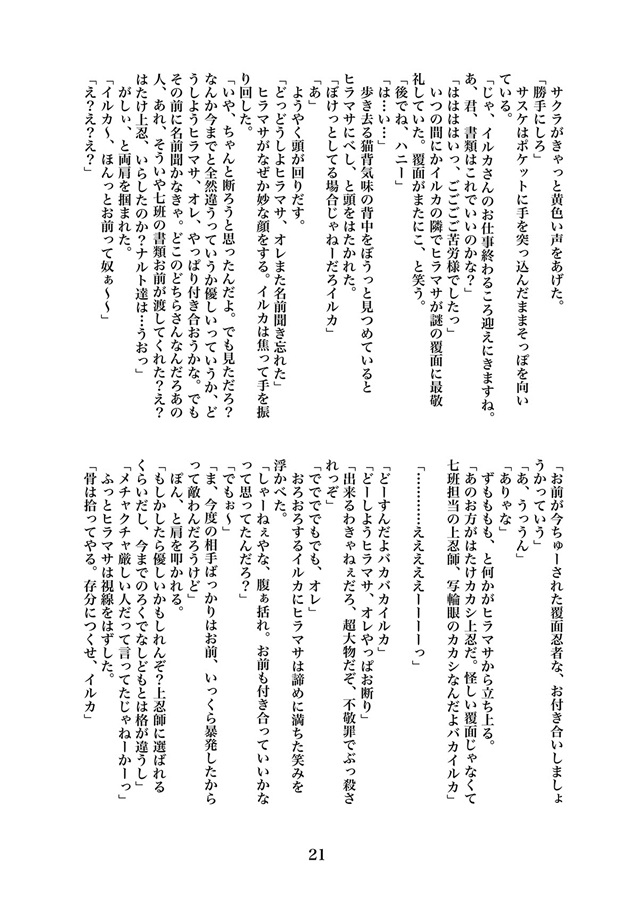 サクラがきゃっと黄色い声をあげた。
「勝手にしろ」
サスケはポケットに手を突っ込んだままそっぽを向い
ている。
「じゃ、イルカさんのお仕事終わるころ迎えにきますね。
あ、君、書類はこれでいいのかな？」
「ははははいっ、ごごごご苦労様でしたっ」
いつの間にかイルカの隣でヒラマサが謎の覆面に最敬
礼していた。覆面がまたにこ、と笑う。
「後でね、ハニー」
「は…い…」
歩き去る猫背気味の背中をぼうっと見つめていると
ヒラマサにべし、と頭をはたかれた。
「ぼけっとしてる場合じゃねーだろイルカ」
「あ」
ようやく頭が回りだす。
「どっどうしよヒラマサ、オレまた名前聞き忘れた」
ヒラマサがなぜか妙な顔をする。イルカは焦って手を振
り回した。
「いや、ちゃんと断ろうと思ったんだよ。でも見ただろ？
なんか今までと全然違うっていうか優しいっていうか、ど
うしようヒラマサ、オレ、やっぱり付き合おうかな。でも
その前に名前聞かなきゃ。どこのどちらさんなんだろあの
人、あれ、そういや七班の書類お前が渡してくれた？え？
はたけ上忍、いらしたのか？ナルト達は…うおっ」
がしぃ、と両肩を掴まれた。
「イルカ〜、ほんっとお前って奴ぁ〜〜」
「え？え？え？」
「お前が今ちゅーされた覆面忍者な、お付き合いしましょ
うかっていう」
「あ、うっうん」
「ありゃな」
ずももも、と何かがヒラマサから立ち上る。
「あのお方がはたけカカシ上忍だ。怪しい覆面じゃなくて
七班担当の上忍師、写輪眼のカカシなんだよバカイルカ」
「…………えええええーーーーっ」
「どーすんだよバカバカイルカ」
「どーしようヒラマサ、オレやっぱお断り」
「出来るわきゃねぇだろ、超大物だぞ、不敬罪でぶっ殺さ
れっぞ」
「ででででもでも、オレ」
おろおろするイルカにヒラマサは諦めに満ちた笑みを
浮かべた。
「しゃーねぇやな、腹ぁ括れ。お前も付き合っていいかな
って思ってたんだろ？」
「でもぉ〜」
「ま、今度の相手ばっかりはお前、いっくら暴発したから
って敵わんだろうけど」
ぽん、と肩を叩かれる。
「もしかしたら優しいかもしれんぞ？上忍師に選ばれる
くらいだし、今までのろくでなしどもとは格が違うし」
「メチャクチャ厳しい人だって言ってたじゃねーかーっ」
ふっとヒラマサは視線をはずした。
「骨は拾ってやる。存分につくせ、イルカ」
21